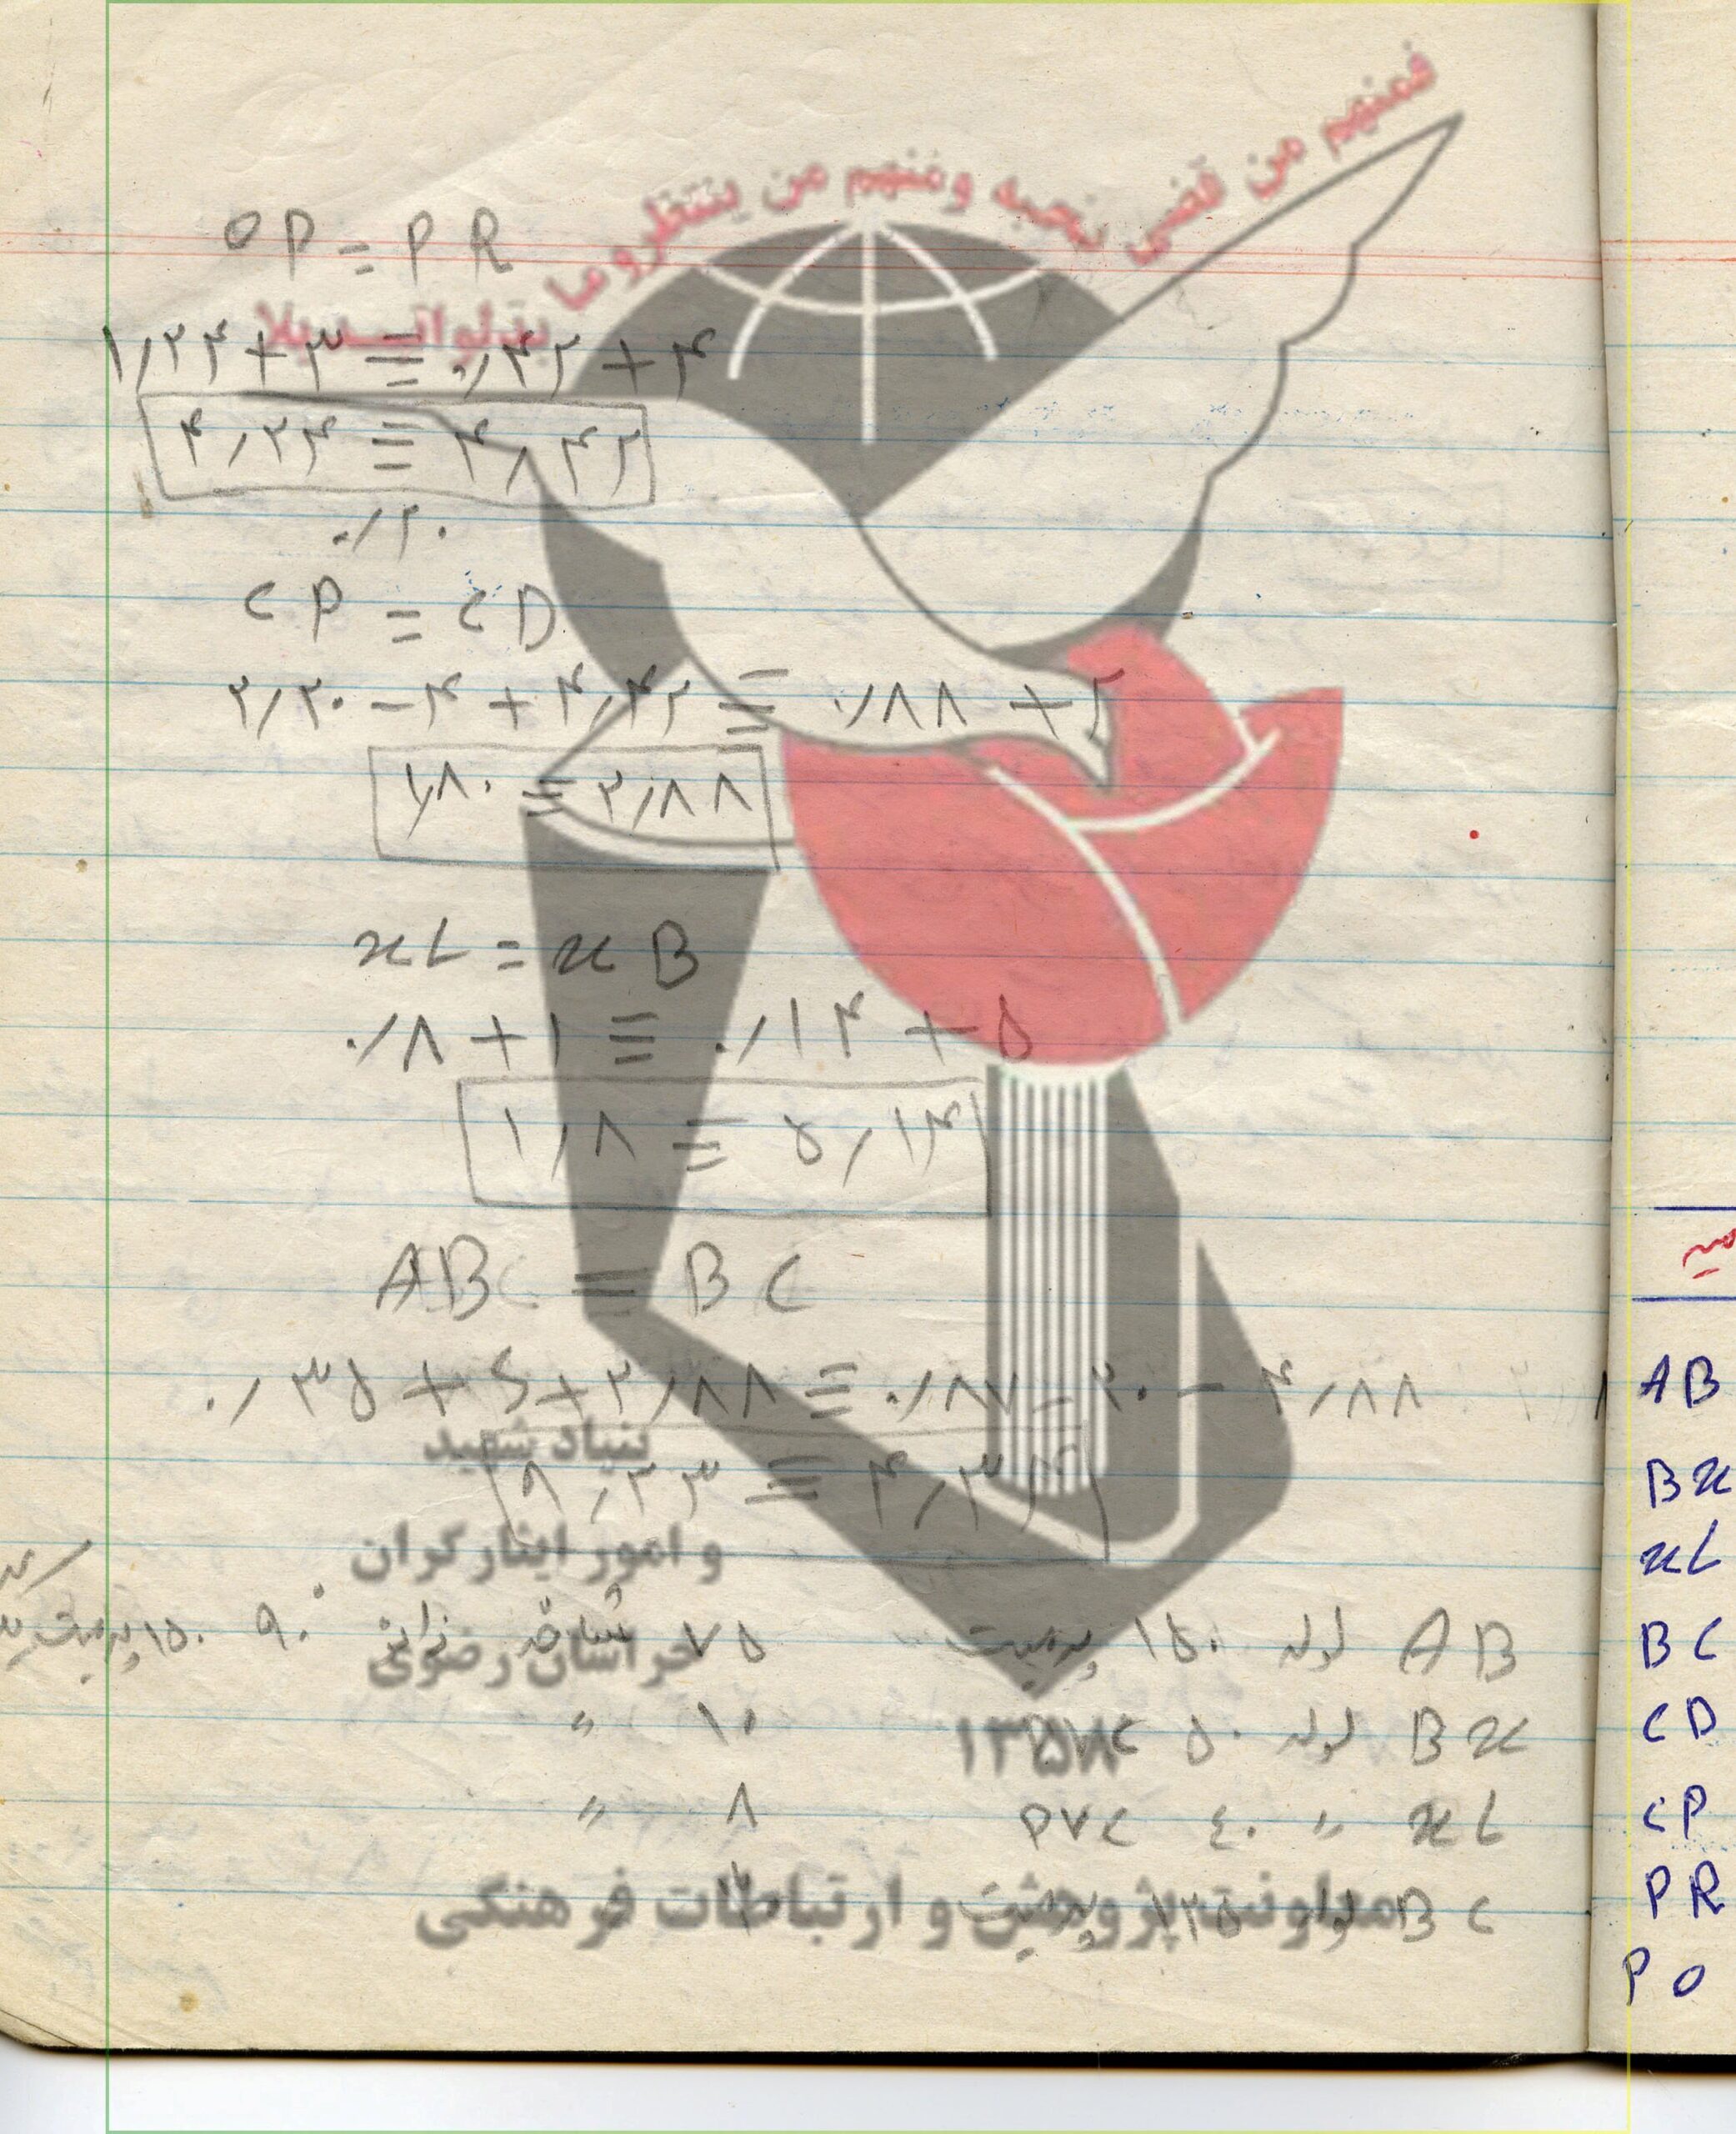 فمنهم من قضی نحبه ومنهم من ینتظر وما بدلوا تبدیلا
OP = PR
۱٫۲۴ + ۳ ≡ ۰٫۴۲ + ۴
۴٫۲۴ ≡ ۴٫۴۲
۰٫۲۰
CP = CD
۲٫۲۰ - ۴ + ۴٫۴۲ ≡ ۰٫۸۸ + ۲
۱٫۸۰ ≡ ۲٫۸۸
xL = xB
۰٫۸ + ۱ ≡ ۰٫۱۴ + ۵
۱٫۸ ≡ ۵٫۱۴
ABC ≡ BC
۰٫۳۵ + ۶ + ۲٫۸۸ ≡ ۰٫۸۷ - ۲۰ - ۴٫۸۸
۹٫۲۳ ≡ ۴٫۳۴
بنیاد شهید
و امور ایثارگران
خراسان رضوی
AB لوله ۱۵۰ پرمیت ۷۵ ۹۰ ۱۵۰ پرمیت
Bx لوله ۵۰ ۱۰ "
۱۳۵۷
xL " ٤۰ PVC ۸ "
BC
معاونت پژوهش و ارتباطات فرهنگی
AB
Bx
xL
BC
CD
CP
PR
PO